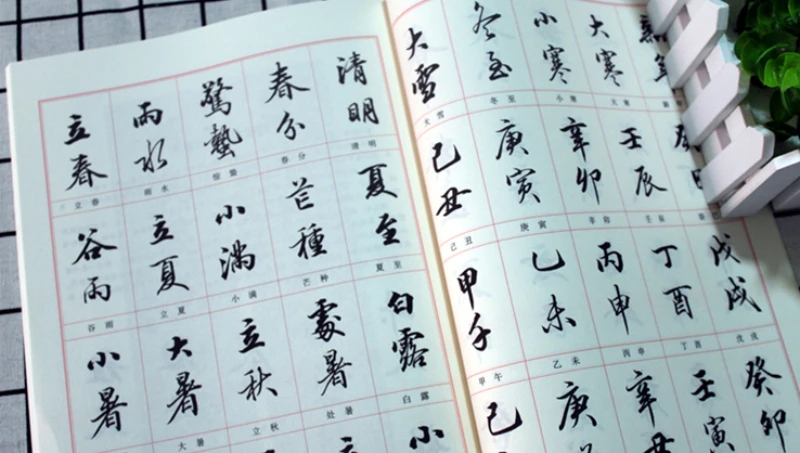 立春 雨水 驚蟄 春分 清明
立春 雨水 惊蛰 春分 清明
谷雨 立夏 小滿 芒種 夏至
谷雨 立夏 小满 芒种 夏至
小暑 大暑 立秋 處暑 白露
大暑 立秋 处暑 白露
立 小
大雪 冬至 小寒 大寒
大雪 冬至 小寒 大寒
己丑 庚寅 辛卯 壬辰
己丑 庚寅 辛卯 壬辰
甲午 乙未 丙申 丁酉 戊戌
甲午 乙未 丙申 丁酉 戊戌
己 庚 辛丑 壬寅 癸卯